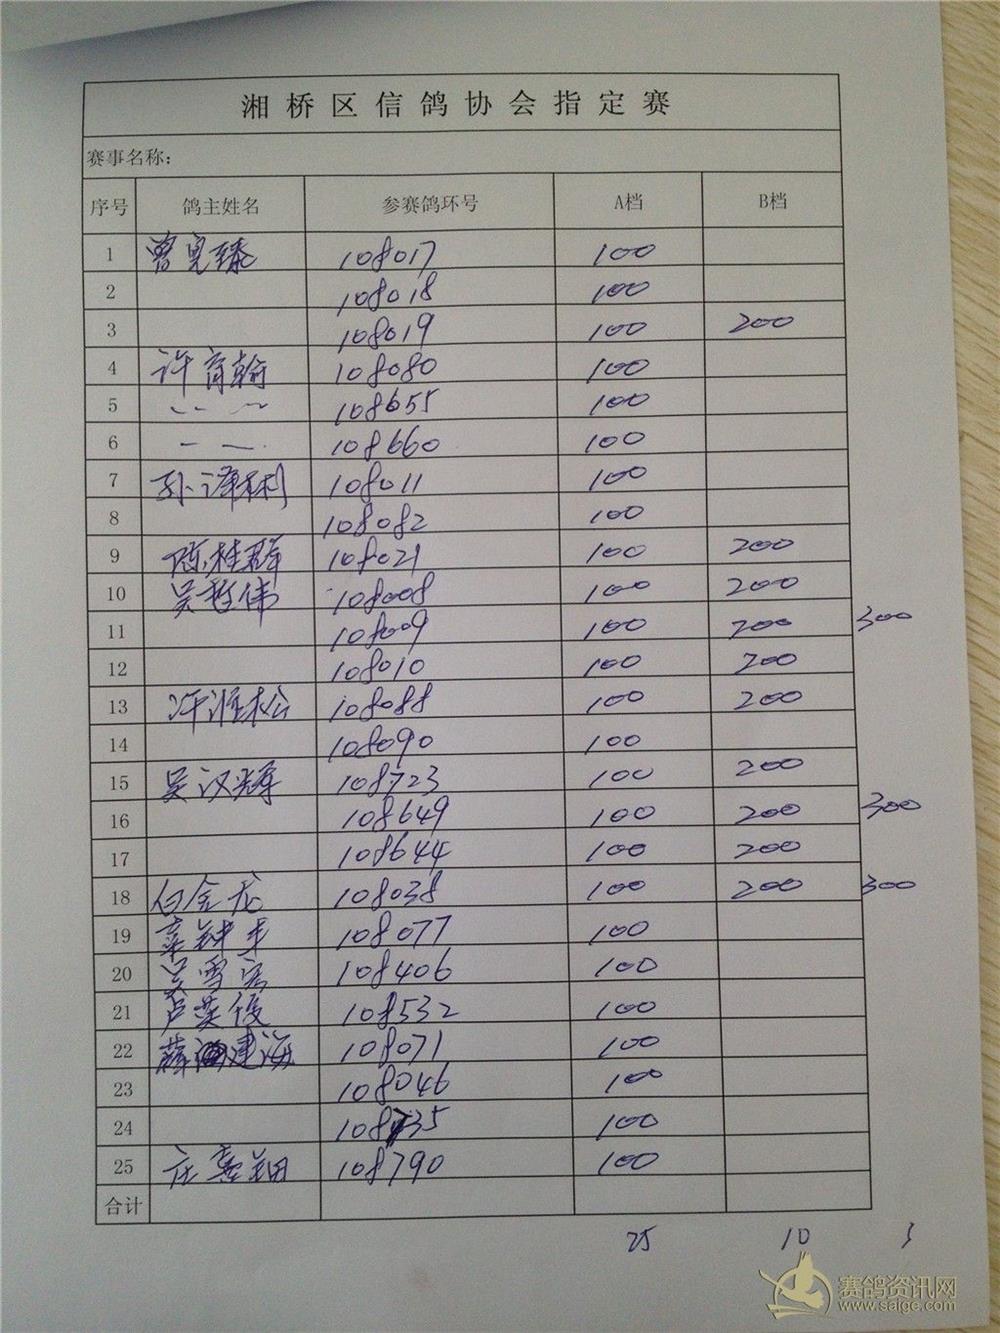 湘桥区信鸽协会指定赛
赛事名称:
序号 鸽主姓名 参赛鸽环号 A档 B档
1 曾宪臻 108017 100
2 108018 100
3 108019 100 200
4 许育翰 108080 100
5 108655 100
6 108660 100
7 孙泽利 108011 100
8 108082 100
9 陈桂群 108021 100 200
10 吴哲伟 108008 100 200
11 108009 100 200 300
12 108010 100 200
13 许淮松 108088 100 200
14 108090 100
15 吴汉辉 108723 100 200
16 108649 100 200 300
17 108644 100 200
18 白金龙 108038 100 200 300
19 108077 100
20 吴雪宏 108406 100
21 卢英俊 108532 100
22 薛建海 108071 100
23 108046 100
24 108735 100
25 108790 100
合计
25 10 3
赛鸽资讯网
www.saige.com